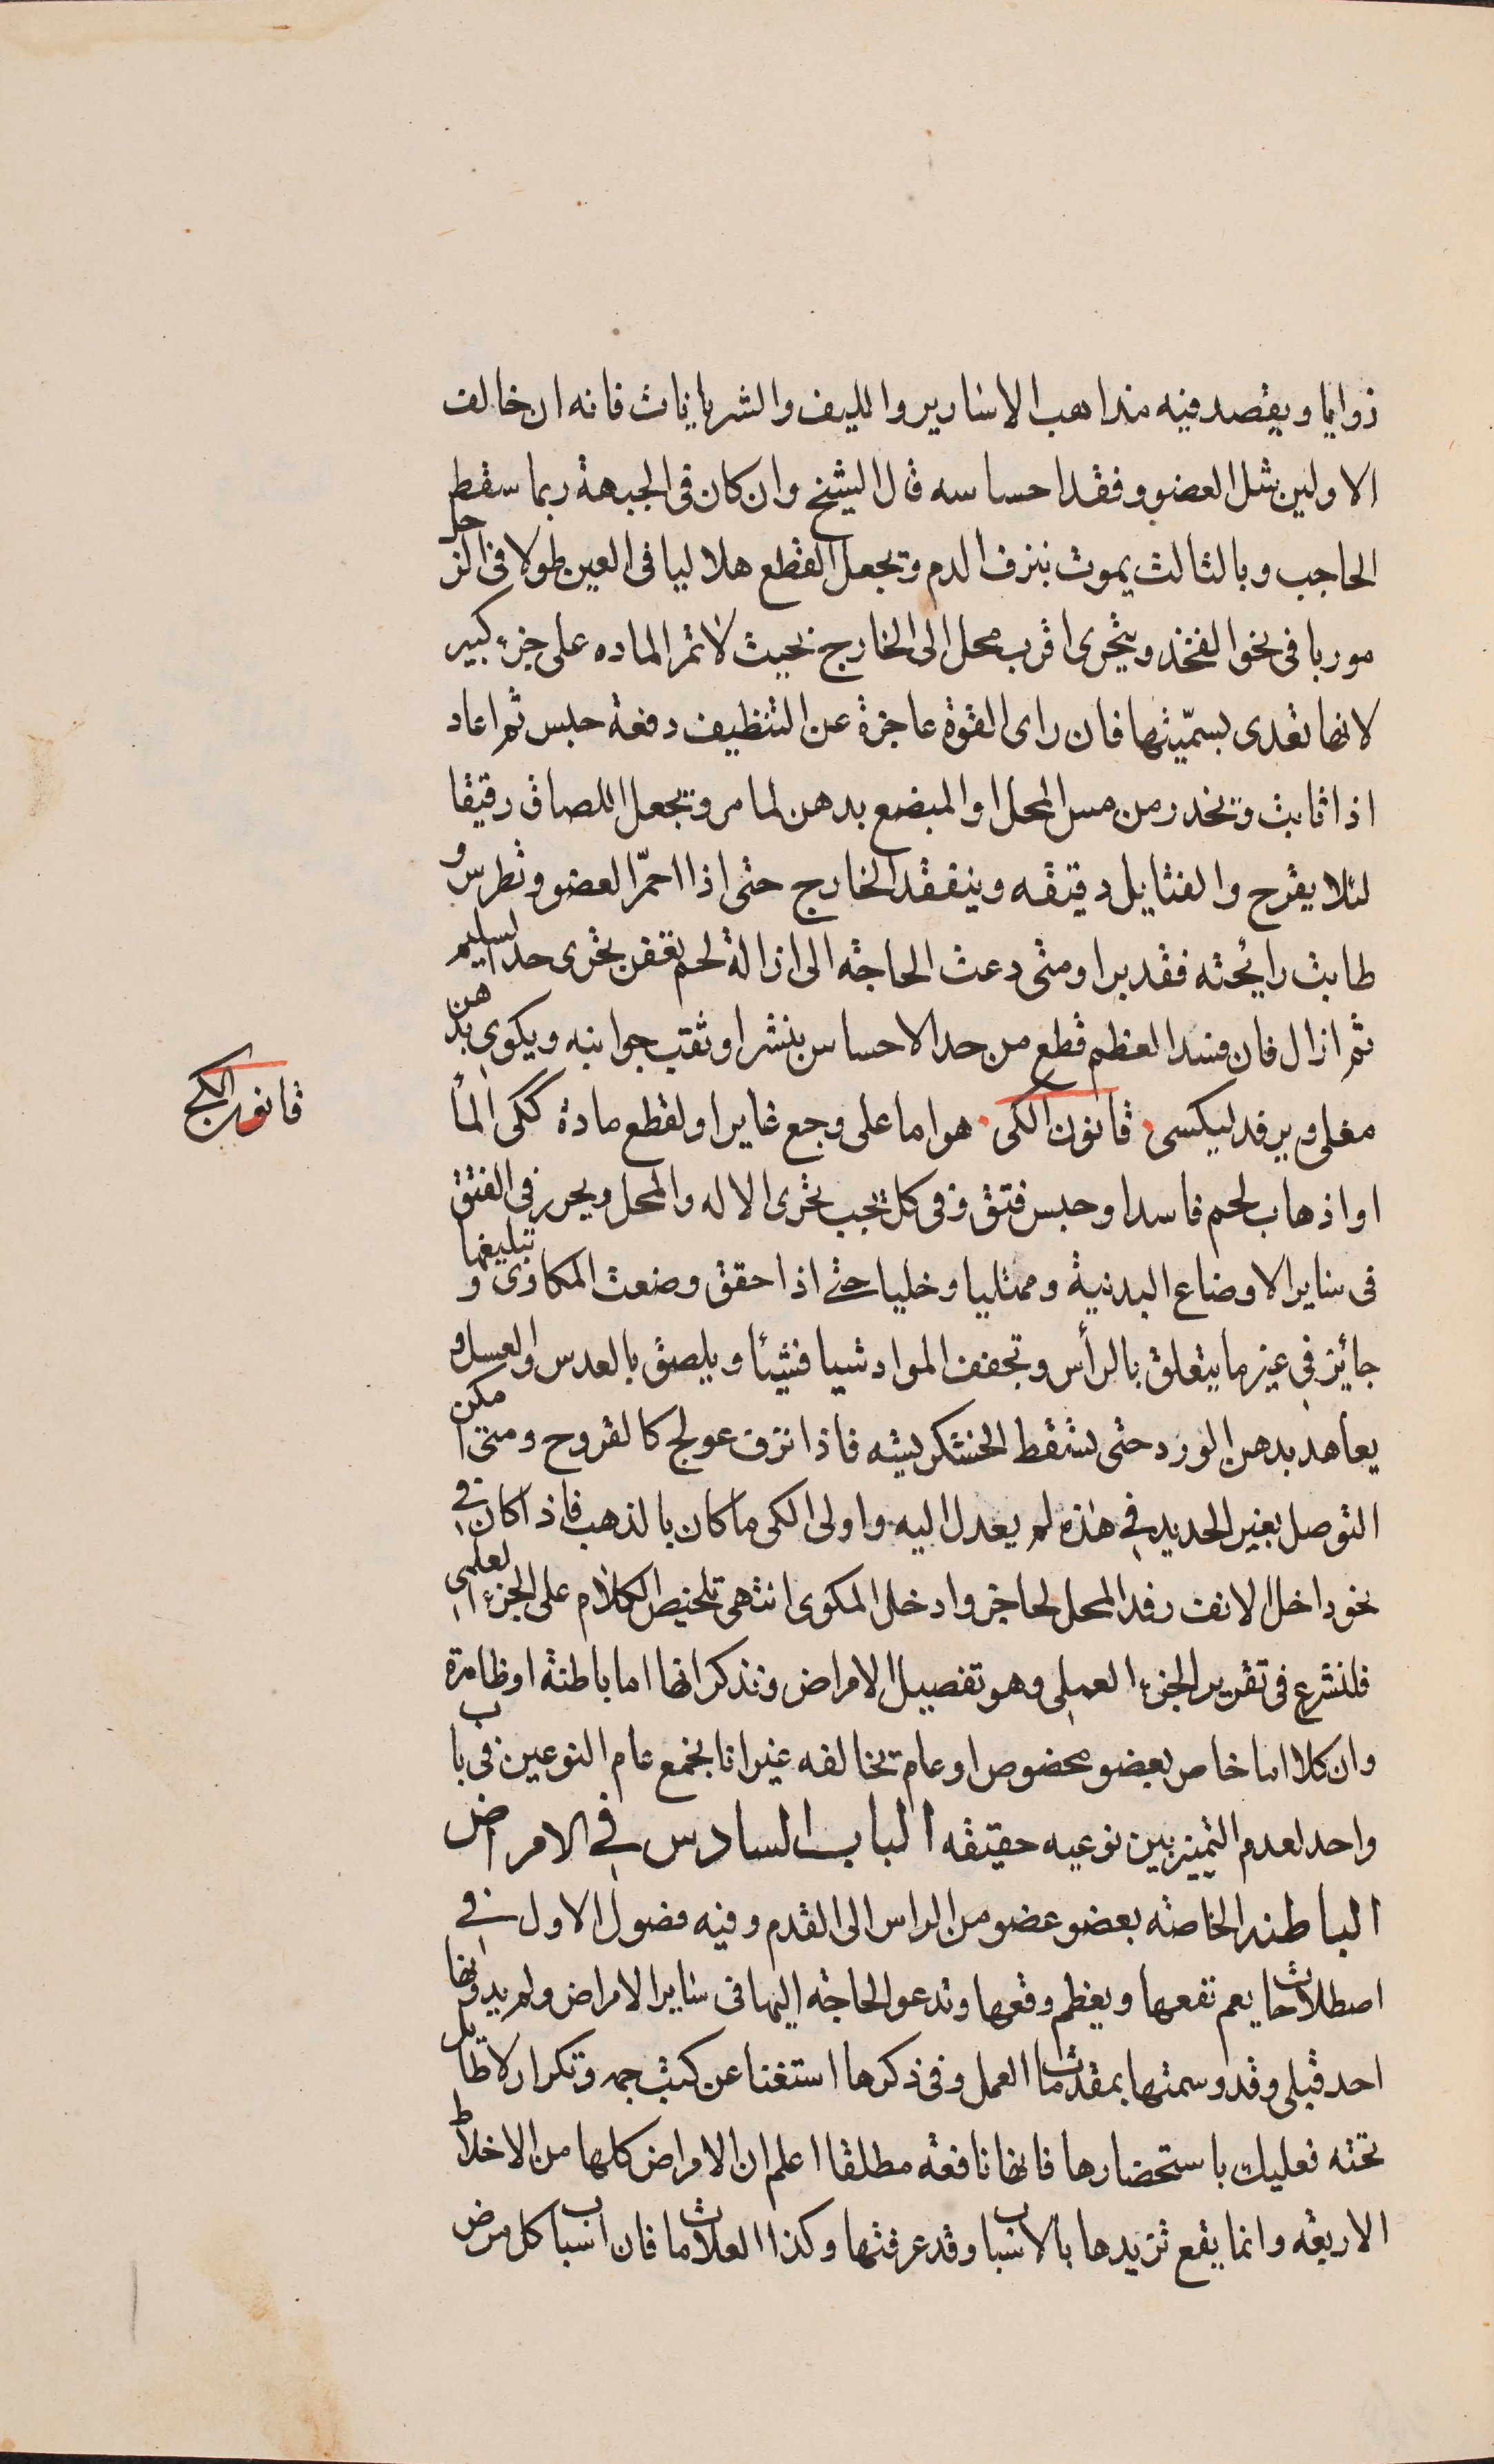 زوايما ويقصد فيه مذاهب الاسارير والليف والشريانات فانه ان خالف
الاولين شل العضو وفقد احساسه قال الشيخ وان كان فى الجبهة ربما سقط
الحاجب وبالثالث يموت بنزف الدم ويجعل القطع هلاليا فى العين طولا فى الرجل
موربا فى نحو الفخذ ويتحرى اقرب محل الى الخارج بحيث لا تمر الماده على جزء كبير
لانها تعدى بسمّيتها فان راى القوة عاجزة عن التنظيف دفعة حبس ثم اعاد
اذا ثابت ويحذر من مس المحل او المبضع بدهن لما مر ويجعل اللصاق رقيقا
لئلا يقرح والفتايل دقيقه ويتفقد الخارج حتى اذا احمّر العضو وتطرس و
طابت رايحته فقد برا ومتى دعت الحاجه الى ازالة لحم تعفن تحرى حد السليم
ثم ازال فان فسد العظم قطع من حد الاحساس بنشر او ثقب جوانبه ويكوى بدهن
مغلى ويرفد ليكسى قانون الكى هو اما على وجع غاير او لقطع مادة ككى الماٴ
او اذهاب لحم فاسد او حبس فتق وفى كل يجب تحرى الاله والمحل ويحرر فى الفتق
فى ساير الاوضاع البدنية وممتليا وخليا حتى اذا حقق وضعت المكاوى و تبليغها
جائز فى غير ما يتعلق بالرأس وتجفف المواد شيا فشيئا ويلصق بالعدس والعسل و
يعاهد بدهن الورد حتى تسقط الخشكريشه فاذا نزف عولج كالقروح ومتى امكن
التوصل بغير الحديد فى هذه لم يعدل اليه واولى الكى ما كان بالذهب فاذا كان فى
نحو داخل الانف رفد المحل لحاجز وادخل المكوى انتهى تلخيص الكلام على الجزء العلمى
فلنشرع فى تقرير الجزء العملى وهو تفصيل الامراض ونذكر انها اما باطنة او ظاهرة
وان كلا اما خاص بعضو مخصوص او عام يخالفه غير انا نجمع عام النوعين فى باب
واحد لعدم التمييز بين نوعيه حقيقه الباب السادس فى الامراض
الباطنه الخاصه بعضو عضو من الراس الى القدم وفيه فصول الاول فى
اصطلاحات يعم نفعها ويعظم وقعها وتدعو الحاجه اليها فى ساير الامراض ولم يدونها
احد قبلى وقد وسمتها بمقدمات العمل وفى ذكرها استغنا عن كتب جمه وتكرار لا طايل
تحته فعليك باستحضارها فانها نافعه مطلقا اعلم ان الامراض كلها من الاخلاط
الاربعه وانما يقع تزيدها بالاسباب وقد عرفتها وكذا العلامات فان اسباب كل مرض
قانون الكى